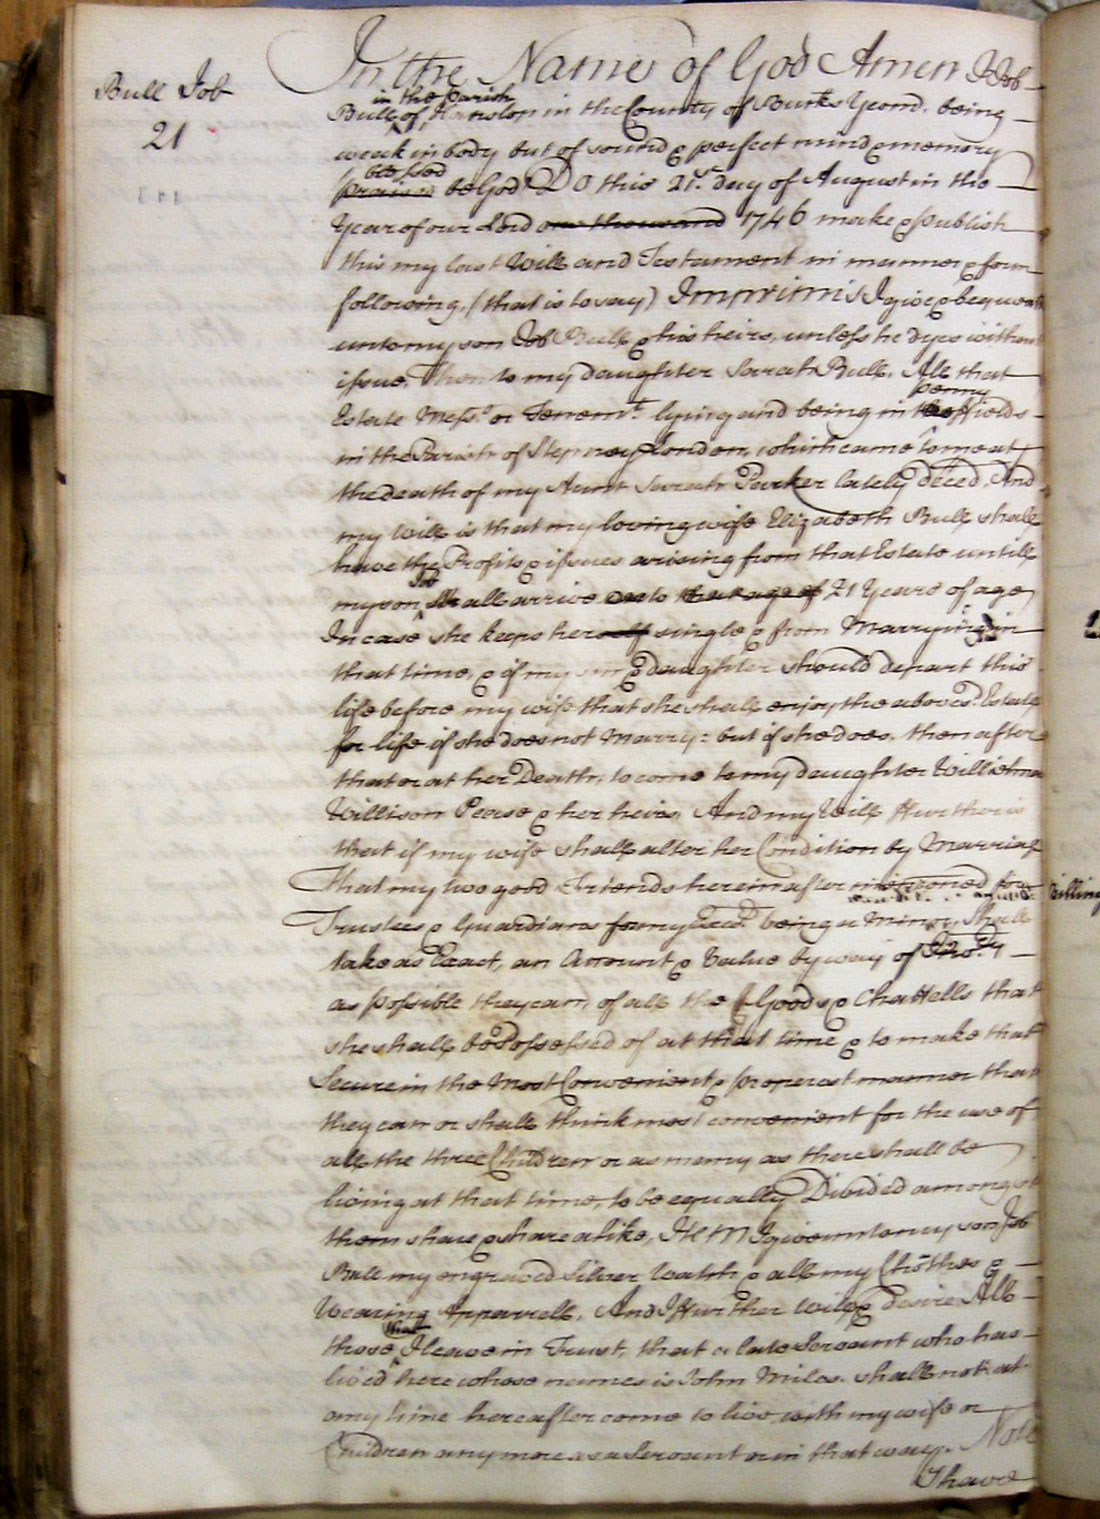 Bull Job
21
In the Name of God Amen I Job
in the parish
Bull of Hanslop in the County of Bucks Yeom. being
weak in body but of sound & perfect mind & memory
blessed
praised be God Do this 21st day of August in the
Year of our Lord one thousand 1746 make & publish
this my last Will and Testament in manner & form
following, (that is to say) Imprimis I give & bequeath
unto my son Job Bull & his heirs, unless he dyes without
issue, Then to my daughter Sarah Bull, All that
penny
Estate Mess. or Tenemt. lying and being in the ffields
in the Parish of Stepney London, which came to me at
the death of my Aunt Sarah Parker lately deced. And
my Will is that my loving wife Elizabeth Bull shall
have the Profits & issues arising from that Estate untill
Job
my son shall arrive to the age of 21 Years of age
In case she keeps herself single & from Marrying in
that time, & if my son & daughter should depart this
life before my wife that she shall enjoy the abovesd. Estate
for life if she does not Marry: but if she does, then after
that or at her Death, to come to my daughter
Willison Pease & her heirs, And my Will ffurther is
that if my wife shall alter her Condition by Marriage
That my two good Friends hereinafter mentioned for
Trustees & Guardians for my being a Minor, Shall
take as Exact, an Amount & Value by way of
as possible they can, of all the Goods & Chattells that
she shall be Possessed of at that time & to make that
Secure in the Most Convenient & properest manner that
they can or shall think most convenient for the use of
all the three Children or as many as there shall be
living at that time, to be equally Divided amongst
them share & share alike, Item I give unto my son Job
Bull my engraved Silver Watch & all my Clothes &
Wearing Apparrell, And I ffurther Will & desire All
that
those I leave in Trust, that a late Servant who has
lived here whose names is John Miles. shall not at
any time hereafter come to live with my wife or
Children any more as a Servant or in that way. Note
I have